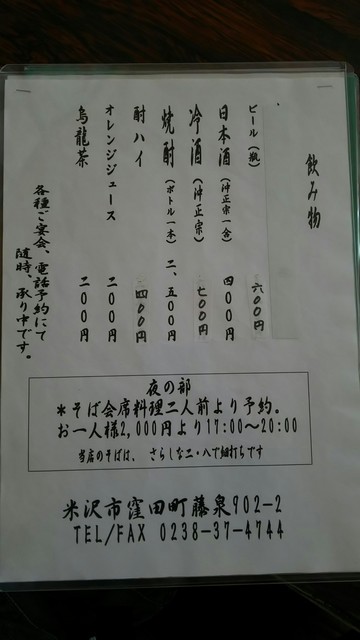 飲み物
ビール（瓶） 六〇〇円
日本酒（沖正宗一合） 四〇〇円
冷酒（沖正宗） 七〇〇円
焼酎（ボトル一本） 二、五〇〇円
酎ハイ 四〇〇円
オレンジジュース 二〇〇円
烏龍茶 二〇〇円
各種ご宴会、電話予約にて
随時、承り中です。
夜の部
＊そば会席料理二人前より予約。
お一人様2,000円より17:00～20:00
当店のそばは、さらしな二・八で細打ちです
米沢市窪田町藤泉902-2
TEL/FAX 0238-37-4744